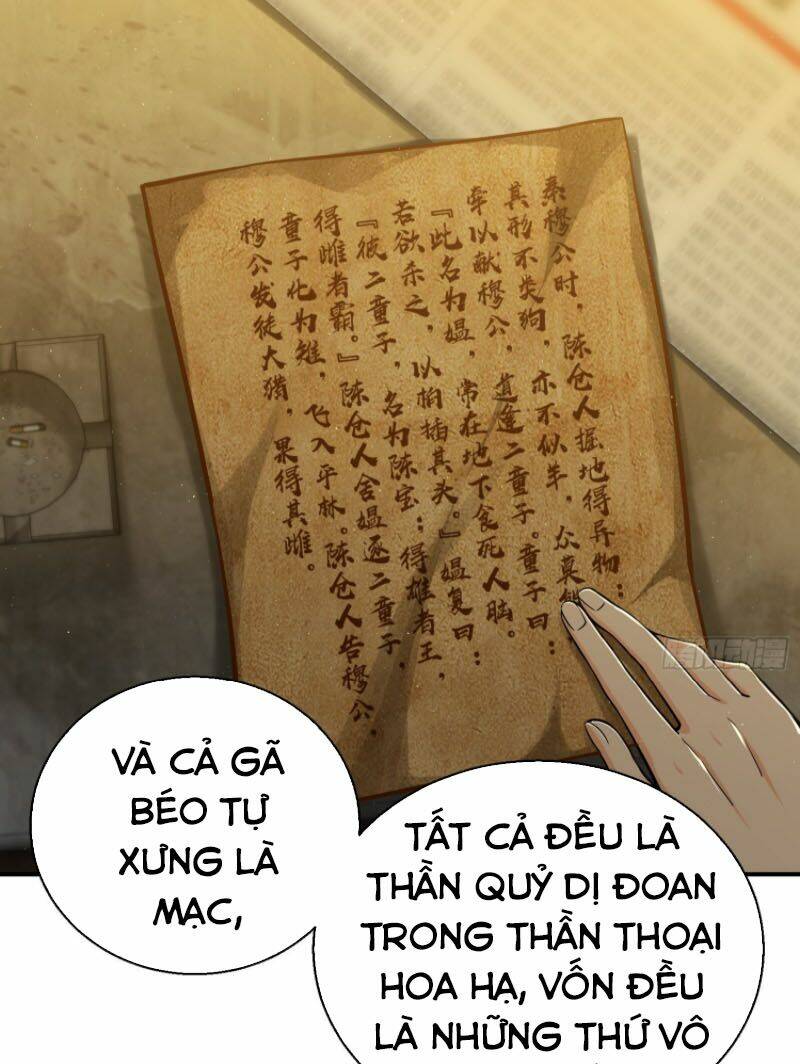 秦穆公时，陈仓人掘地得异物：
其形不类狗，亦不似羊，众莫能
牵以献穆公，道逢二童子。童子曰：
『此名为媪，常在地下食死人脑。
若欲杀之，以柏插其头。』媪复曰：
『彼二童子，名为陈宝：得雄者王，
得雌者霸。』陈仓人舍媪逐二童子，
童子化为雉，飞入平林。陈仓人告穆公，
穆公发徒大猎，果得其雌。
VÀ CẢ GÃ
BÉO TỰ
XƯNG LÀ
MẠC,
TẤT CẢ ĐỀU LÀ
THẦN QUỶ DỊ ĐOAN
TRONG THẦN THOẠI
HOA HẠ, VỐN ĐỀU
LÀ NHỮNG THỨ VÔ